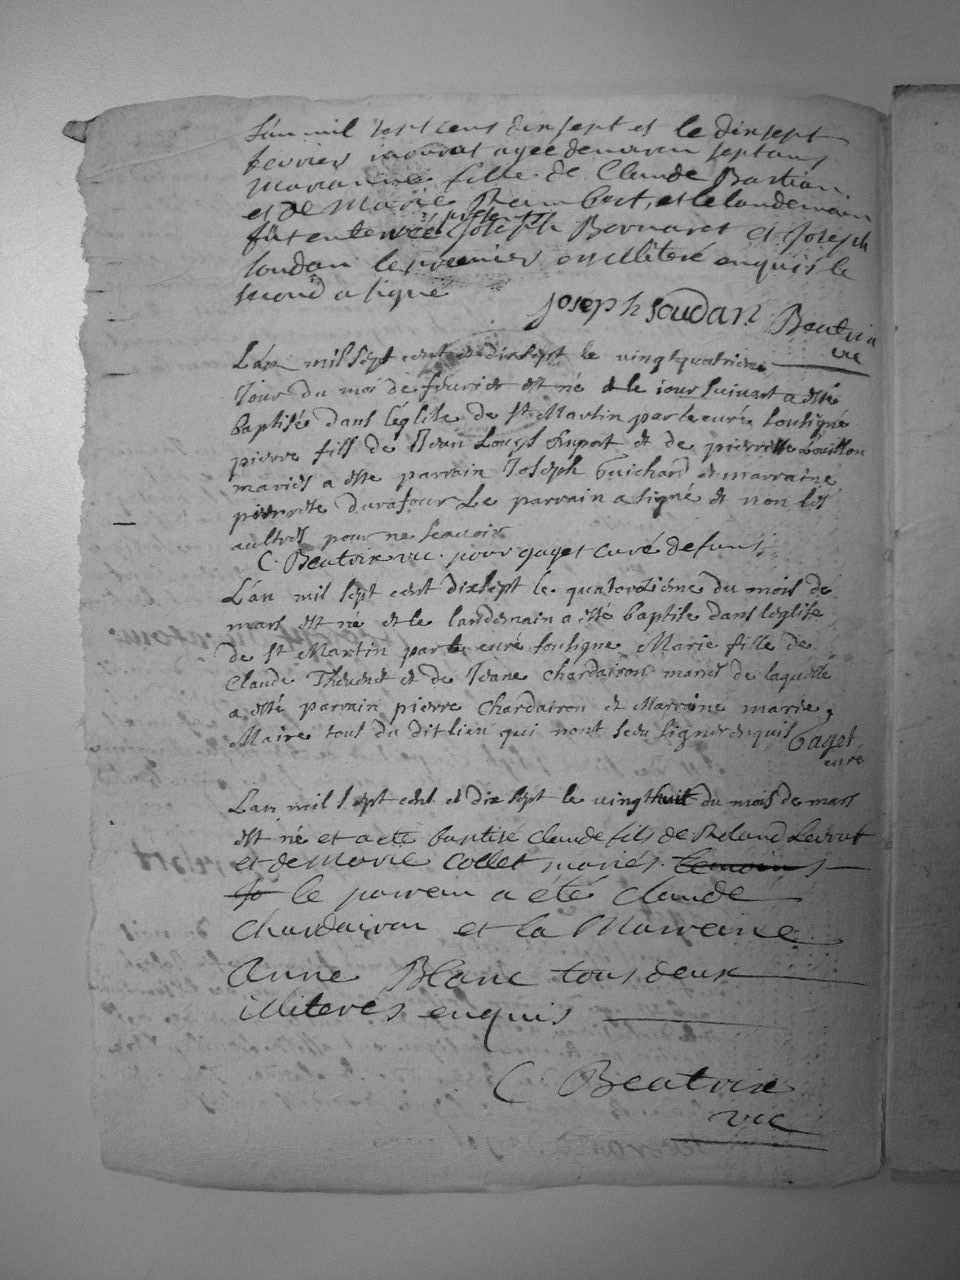 L'an mil sept cens dixsept et le dixsept
fevrier mourut agée denviron sept ans
Marianne fille de Claude Bastian
et de Marie Rambert, et le landemain
fût enterrée présents Joseph Bernard et Joseph
Soudan le premier en illiteré enquis le
second a signé
Joseph Soudan Beatrix
vic
L'an mil sept cent et dixsept le vingtquatrieme
Jour du moi de feuvrier est né et le jour suivant a esté
baptisé dans l'eglise de st Martin par le curé soussigné
pierre fils de Jean Louys et de pierrette
mariés a esté parrain Joseph Guichard et marraine
pierrette durafour Le parrain a signé et non les
aultres pour ne scavoir
C. Beatrix vic. pour gayet curé defunt
L'an mil sept cent dixsept le quatorzieme du mois de
mars est né et le landemain a esté baptisé dans l'eglise
de st Martin par le curé sousigné Marie fille de
Claude et de Jeane Chardairon mariés de laquelle
a esté parrain pierre Chardairon et Marreine marie
Maire tous du dit lieu qui nont sceu signer enquis Gayet
curé
L'an mil sept cent et dix sept le vingthuit du mois de mars
est né et a eté baptisé Claude fils de Roland
et de Marie Collet mariés. temoins
le parrein a été Claude
Chardairon et la Marreine
Anne Blanc tous deux
illiterés enquis
C Beatrix
vic